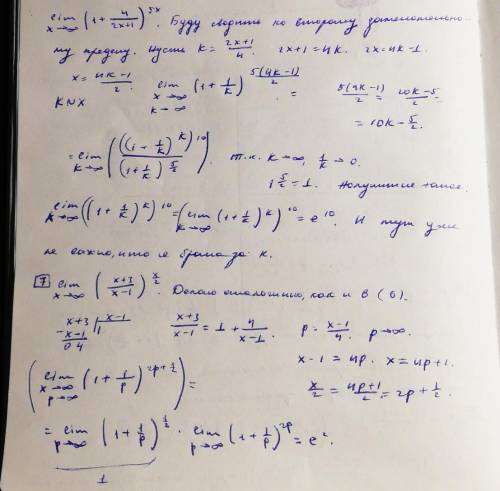 lim x→∞ (1 + 4/(2x+1))^5x. Буду сводить ко второму замечательно-
му пределу. Пусть k = (2x+1)/4. 2x+1 = 4k. 2x = 4k-1.
x = (4k-1)/2. lim x→∞ k→∞ (1 + 1/k)^(5(4k-1)/2) = 5(4k-1)/2 = (20k-5)/2 =
k~x = 10k - 5/2.
= lim k→∞ (((1 + 1/k)^k)^10 / (1 + 1/k)^(5/2)). Т.к. k→∞, 1/k → 0.
1^(5/2) = 1. Получится такое:
lim k→∞ ((1 + 1/k)^k)^10 = (lim k→∞ (1 + 1/k)^k)^10 = e^10. И тут уже
не важно, что я брала за k.
7 lim x→∞ ((x+3)/(x-1))^(x/2). Делаю аналогично, как и в (6).
x+3 | x-1 (x+3)/(x-1) = 1 + 4/(x-1). p = (x-1)/4. p→∞.
- x-1 | 1
0 4 x-1 = 4p. x = 4p+1.
(lim x→∞ p→∞ (1 + 1/p)^(2p+1/2)) = x/2 = (4p+1)/2 = 2p + 1/2.
= lim p→∞ (1 + 1/p)^(1/2) · lim p→∞ (1 + 1/p)^2p = e^2.
1